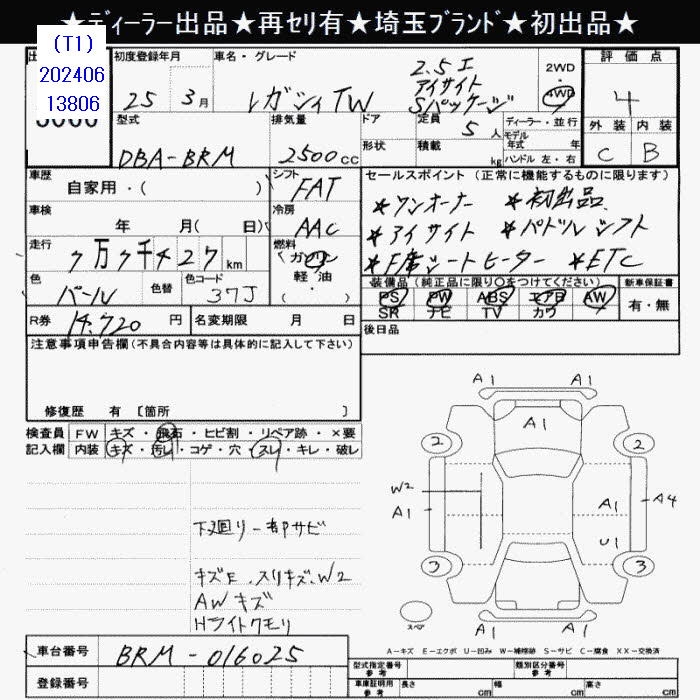 ★ディーラー出品★再セリ有★埼玉ブランド★初出品★
(T1)
202406
13806
初度登録年月
25 3月
車名・グレード
レガシィTW
2.5 I
アイサイト
Sパッケージ
2WD
・
4WD
評価点
4
外装 内装
C B
型式
DBA-BRM
排気量
2500cc
ドア
形状
定員
5人
積載
kg
ディーラー・並行
モデル
年式 年
ハンドル 左・右
車歴
自家用・( )
シフト
FAT
車検
年 月( 日)
冷房
AAC
走行
7万7千427km
燃料
ガソリン
軽油
( ・ )
色
パール
色替
色コード
37J
R券 14,720円
名変期限 月 日
セールスポイント(正常に機能するものに限ります)
★ワンオーナー ★初出品
★アイサイト ★パドルシフト
★F席シートヒーター ★ETC
装備品(純正品に限り○をつけてください)
新車保証書
PS PW ABS エアB AW
SR ナビ TV カワ
有・無
後日品
注意事項申告欄(不具合内容等は具体的に記入して下さい)
修復歴 有 [箇所 ]
検査員
記入欄
FW キズ・飛石・ヒビ割・リペア跡・×要
内装 キズ・汚レ・コゲ・穴・スレ・キレ・破レ
下廻り一部サビ
キズE、スリキズ、W2
AWキズ
Hライトクモリ
A1 A1
A1
2 2
W2
A1
A1
A4
U1
3 3
スペア
A1 A1
A-キズ E-エクボ U-凹み W-補修跡 S-サビ C-腐食 XX-交換済
車台番号
BRM-016025
登録番号
型式指定番号
参考
類別区分番号
参考
車庫証明用
参考
長さ cm
幅 cm
高さ cm